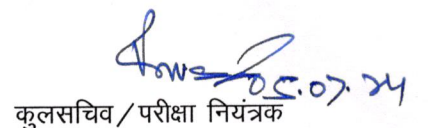 05.07.24
कुलसचिव / परीक्षा नियंत्रक